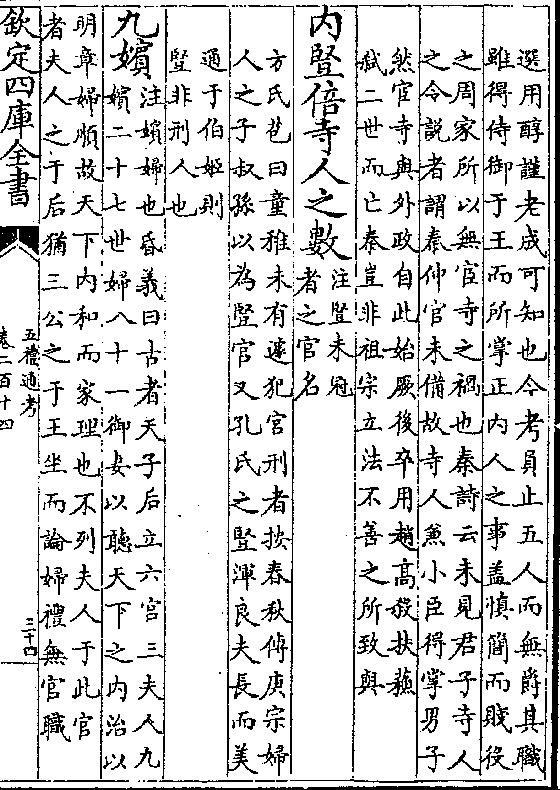 選用醇謹老成可知也今考員止五人而無爵其職
雖得侍御于王而所掌正内人之事盖慎簡而賤役
之周家所以無宦寺之禍也秦詩云未見君子寺人
之令説者謂秦仲官未備故寺人兼小臣得掌男子
然宦寺與外政自此始厥後卒用趙高殺扶蘇
弑二世而亡秦豈非祖宗立法不善之所致與
内豎倍寺人之數
注豎未冠
者之官名
方氏苞曰童稚未有遽犯宫刑者按春秋傳庚宗婦
人之子叔孫以為豎官又孔氏之豎渾良夫長而美
通于伯姬則
豎非刑人也
九嬪
注嬪婦也昏義曰古者天子后立六宫三夫人九
嬪二十七世婦八十一御女以聽天下之内治以
明章婦順故天下内和而家理也不列夫人于此官
者夫人之于后猶三公之于王坐而論婦禮無官職
欽定四庫全書
五禮通考
卷二百十四
三十四